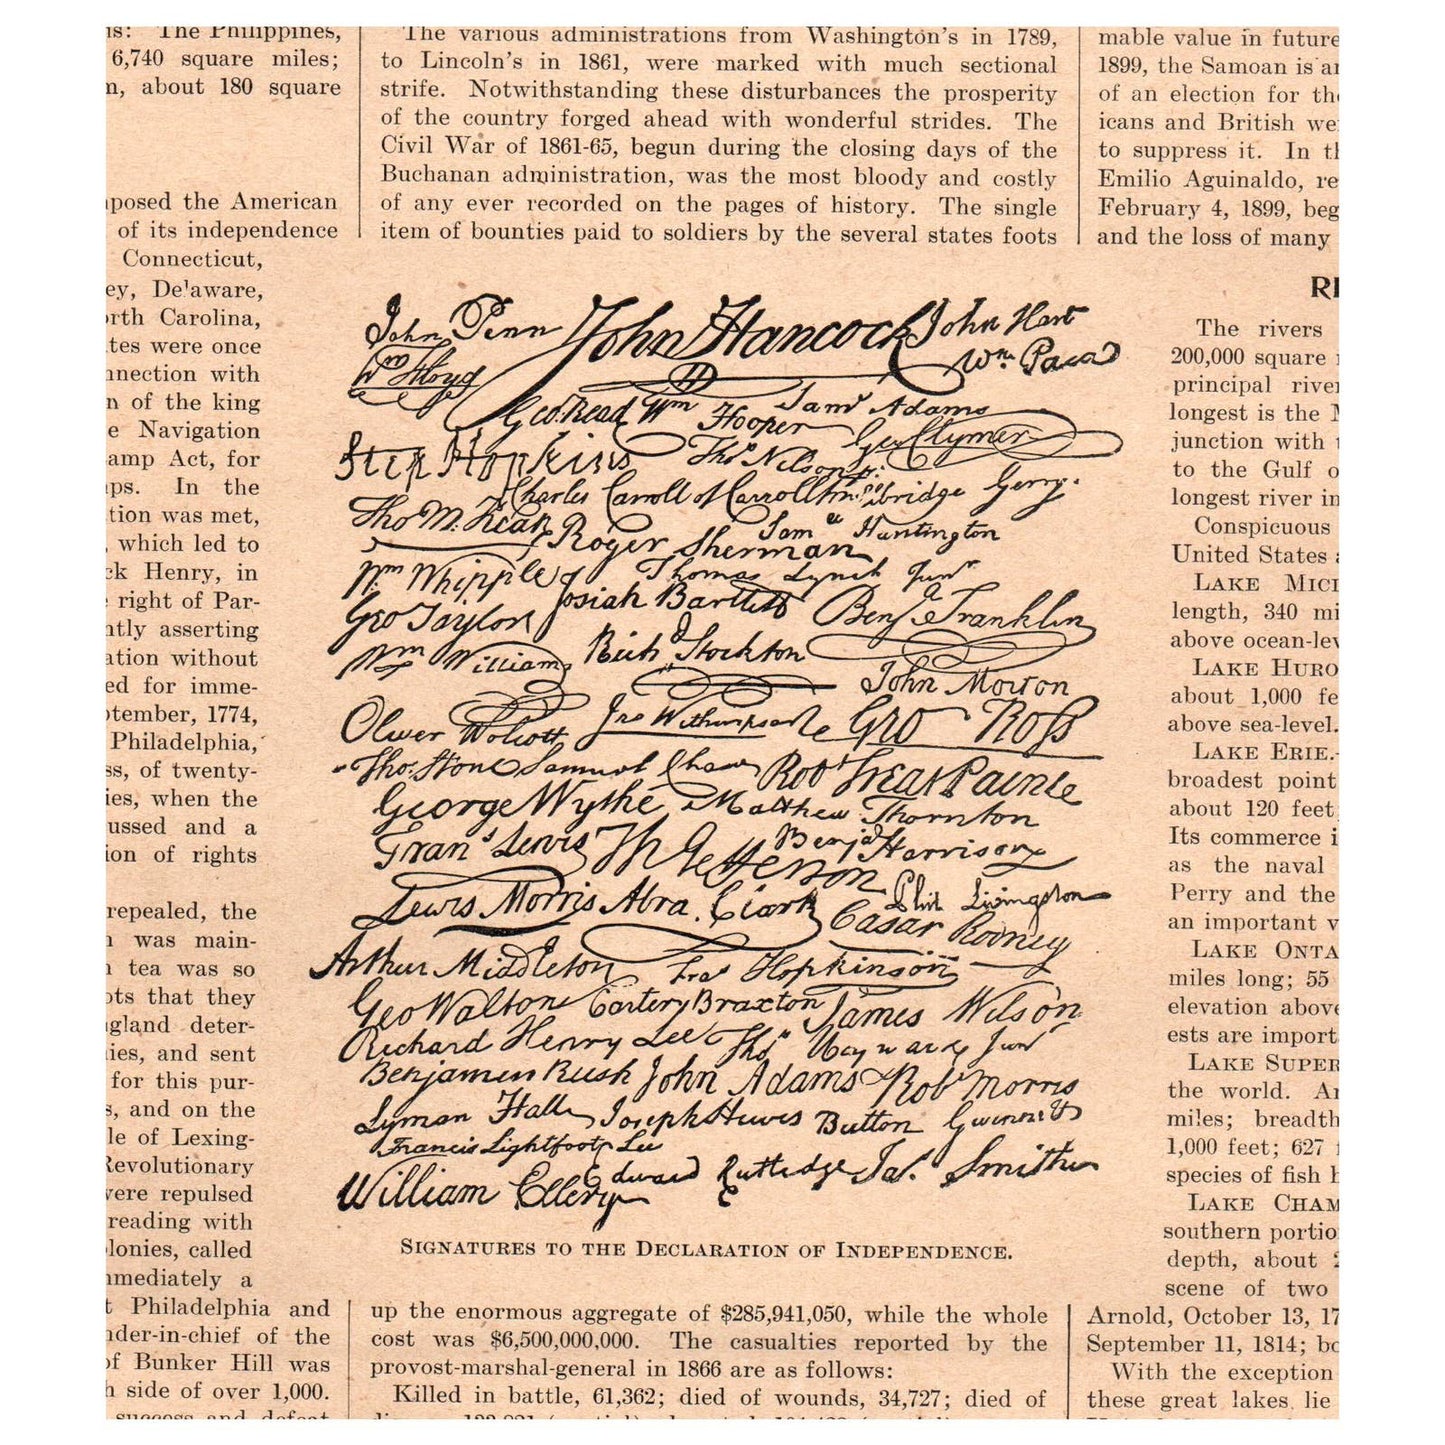 is: The Philippines,
6,740 square miles;
n, about 180 square
posed the American
of its independence
Connecticut,
ey, Delaware,
rth Carolina,
tes were once
nnection with
n of the king
e Navigation
amp Act, for
ps. In the
tion was met,
, which led to
ck Henry, in
right of Par-
tly asserting
ation without
ed for imme-
tember, 1774,
Philadelphia,
ss, of twenty-
ies, when the
ussed and a
ion of rights
repealed, the
was main-
tea was so
ots that they
gland deter-
ies, and sent
for this pur-
s, and on the
le of Lexing-
Revolutionary
were repulsed
reading with
lonies, called
mmediately a
t Philadelphia and
nder-in-chief of the
of Bunker Hill was
n side of over 1,000.
success and defeat
The various administrations from Washington's in 1789,
to Lincoln's in 1861, were marked with much sectional
strife. Notwithstanding these disturbances the prosperity
of the country forged ahead with wonderful strides. The
Civil War of 1861-65, begun during the closing days of the
Buchanan administration, was the most bloody and costly
of any ever recorded on the pages of history. The single
item of bounties paid to soldiers by the several states foots
John Penn John Hancock John Hart
Wm Floyd Wm Paca
Geo. Read Wm Hooper Saml Adams
Step Hopkins Thos Nelson jr. Geo Clymer
Charles Carroll of Carrollton Elbridge Gerry
Tho M. Kean Roger Sherman Saml Huntington
Wm Whipple Thomas Lynch Junr
Geo Taylor Josiah Bartlett Benj Franklin
Wm Williams Richd Stockton John Morton
Oliver Wolcott Jno Witherspoon Geo Ross
Thos. Stone Samuel Chase Robt Treat Paine
George Wythe Matthew Thornton
Frans Lewis Th Jefferson Benja Harrison
Lewis Morris Abra. Clark Phil Livingston
Casar Rodney
Arthur Middleton Fras Hopkinson
Geo Walton Carter Braxton James Wilson
Richard Henry Lee Thos Heyward Junr
Benjamin Rush John Adams Robt Morris
Lyman Hall Joseph Hewes Button Gwinnett
Francis Lightfoot Lee
William Ellery Edward Rutledge Jas. Smith
SIGNATURES TO THE DECLARATION OF INDEPENDENCE.
up the enormous aggregate of $285,941,050, while the whole
cost was $6,500,000,000. The casualties reported by the
provost-marshal-general in 1866 are as follows:
Killed in battle, 61,362; died of wounds, 34,727; died of
mable value in future
1899, the Samoan is ar
of an election for the
icans and British we
to suppress it. In th
Emilio Aguinaldo, re
February 4, 1899, beg
and the loss of many
RI
The rivers
200,000 square
principal river
longest is the M
junction with
to the Gulf o
longest river in
Conspicuous
United States a
LAKE MICI
length, 340 mi
above ocean-lev
LAKE HURO
about 1,000 fe
above sea-level.
LAKE ERIE.-
broadest point
about 120 feet
Its commerce i
as the naval
Perry and the
an important v
LAKE ONTA
miles long; 55
elevation above
ests are import
LAKE SUPER
the world. An
miles; breadth
1,000 feet; 627
species of fish h
LAKE CHAM
southern portio
depth, about 2
scene of two
Arnold, October 13, 17
September 11, 1814; bo
With the exception
these great lakes lie